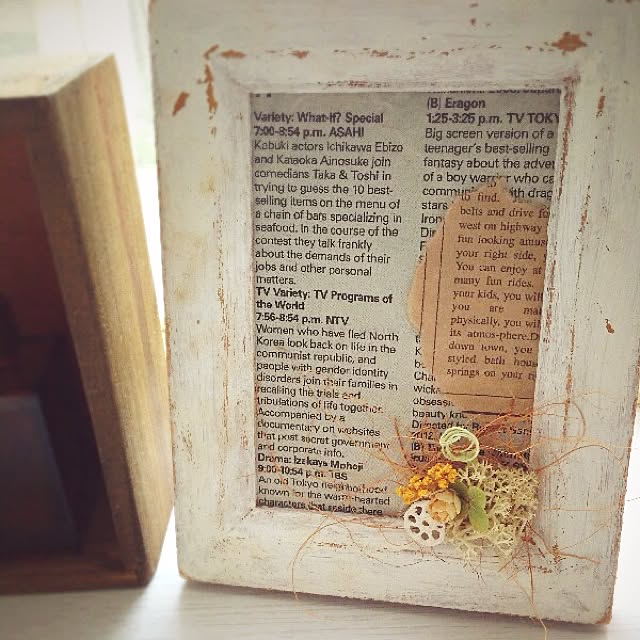 Variety: What-If? Special
7:00-8:54 p.m. ASAHI
Kabuki actors Ichikawa Ebizo
and Kataoka Ainosuke join
comedians Taka & Toshi in
trying to guess the 10 best-
selling items on the menu of
a chain of bars specializing in
seafood. In the course of the
contest they talk frankly
about the demands of their
jobs and other personal
matters.
TV Variety: TV Programs of
the World
7:56-8:54 p.m. NTV
Women who have fled North
Korea look back on life in the
communist republic, and
people with gender identity
disorders join their families in
recalling the trials and
tribulations of life together.
Accompanied by a
documentary on websites
that post secret government
and corporate info.
Drama: Izakaya Moheji
9:00-10:54 p.m. TBS
An old Tokyo neighborhood
known for the warm-hearted
characters that reside there
(B) Eragon
1:25-3:25 p.m. TV TOKY
Big screen version of a
teenager's best-selling
fantasy about the adven
of a boy warrior who ca
commun with drag
stars
Iron
Di
Cha
wick
obsess
beauty kn
Directed by
2012
(B)
to find.
belts and drive fo
west on highway
fun looking amus
your right side,
You can enjoy at
many fun rides.
your kids, you will
you are ma
physically, you wil
its atmos-phere.D
down town, you
styled bath hous
springs on your r